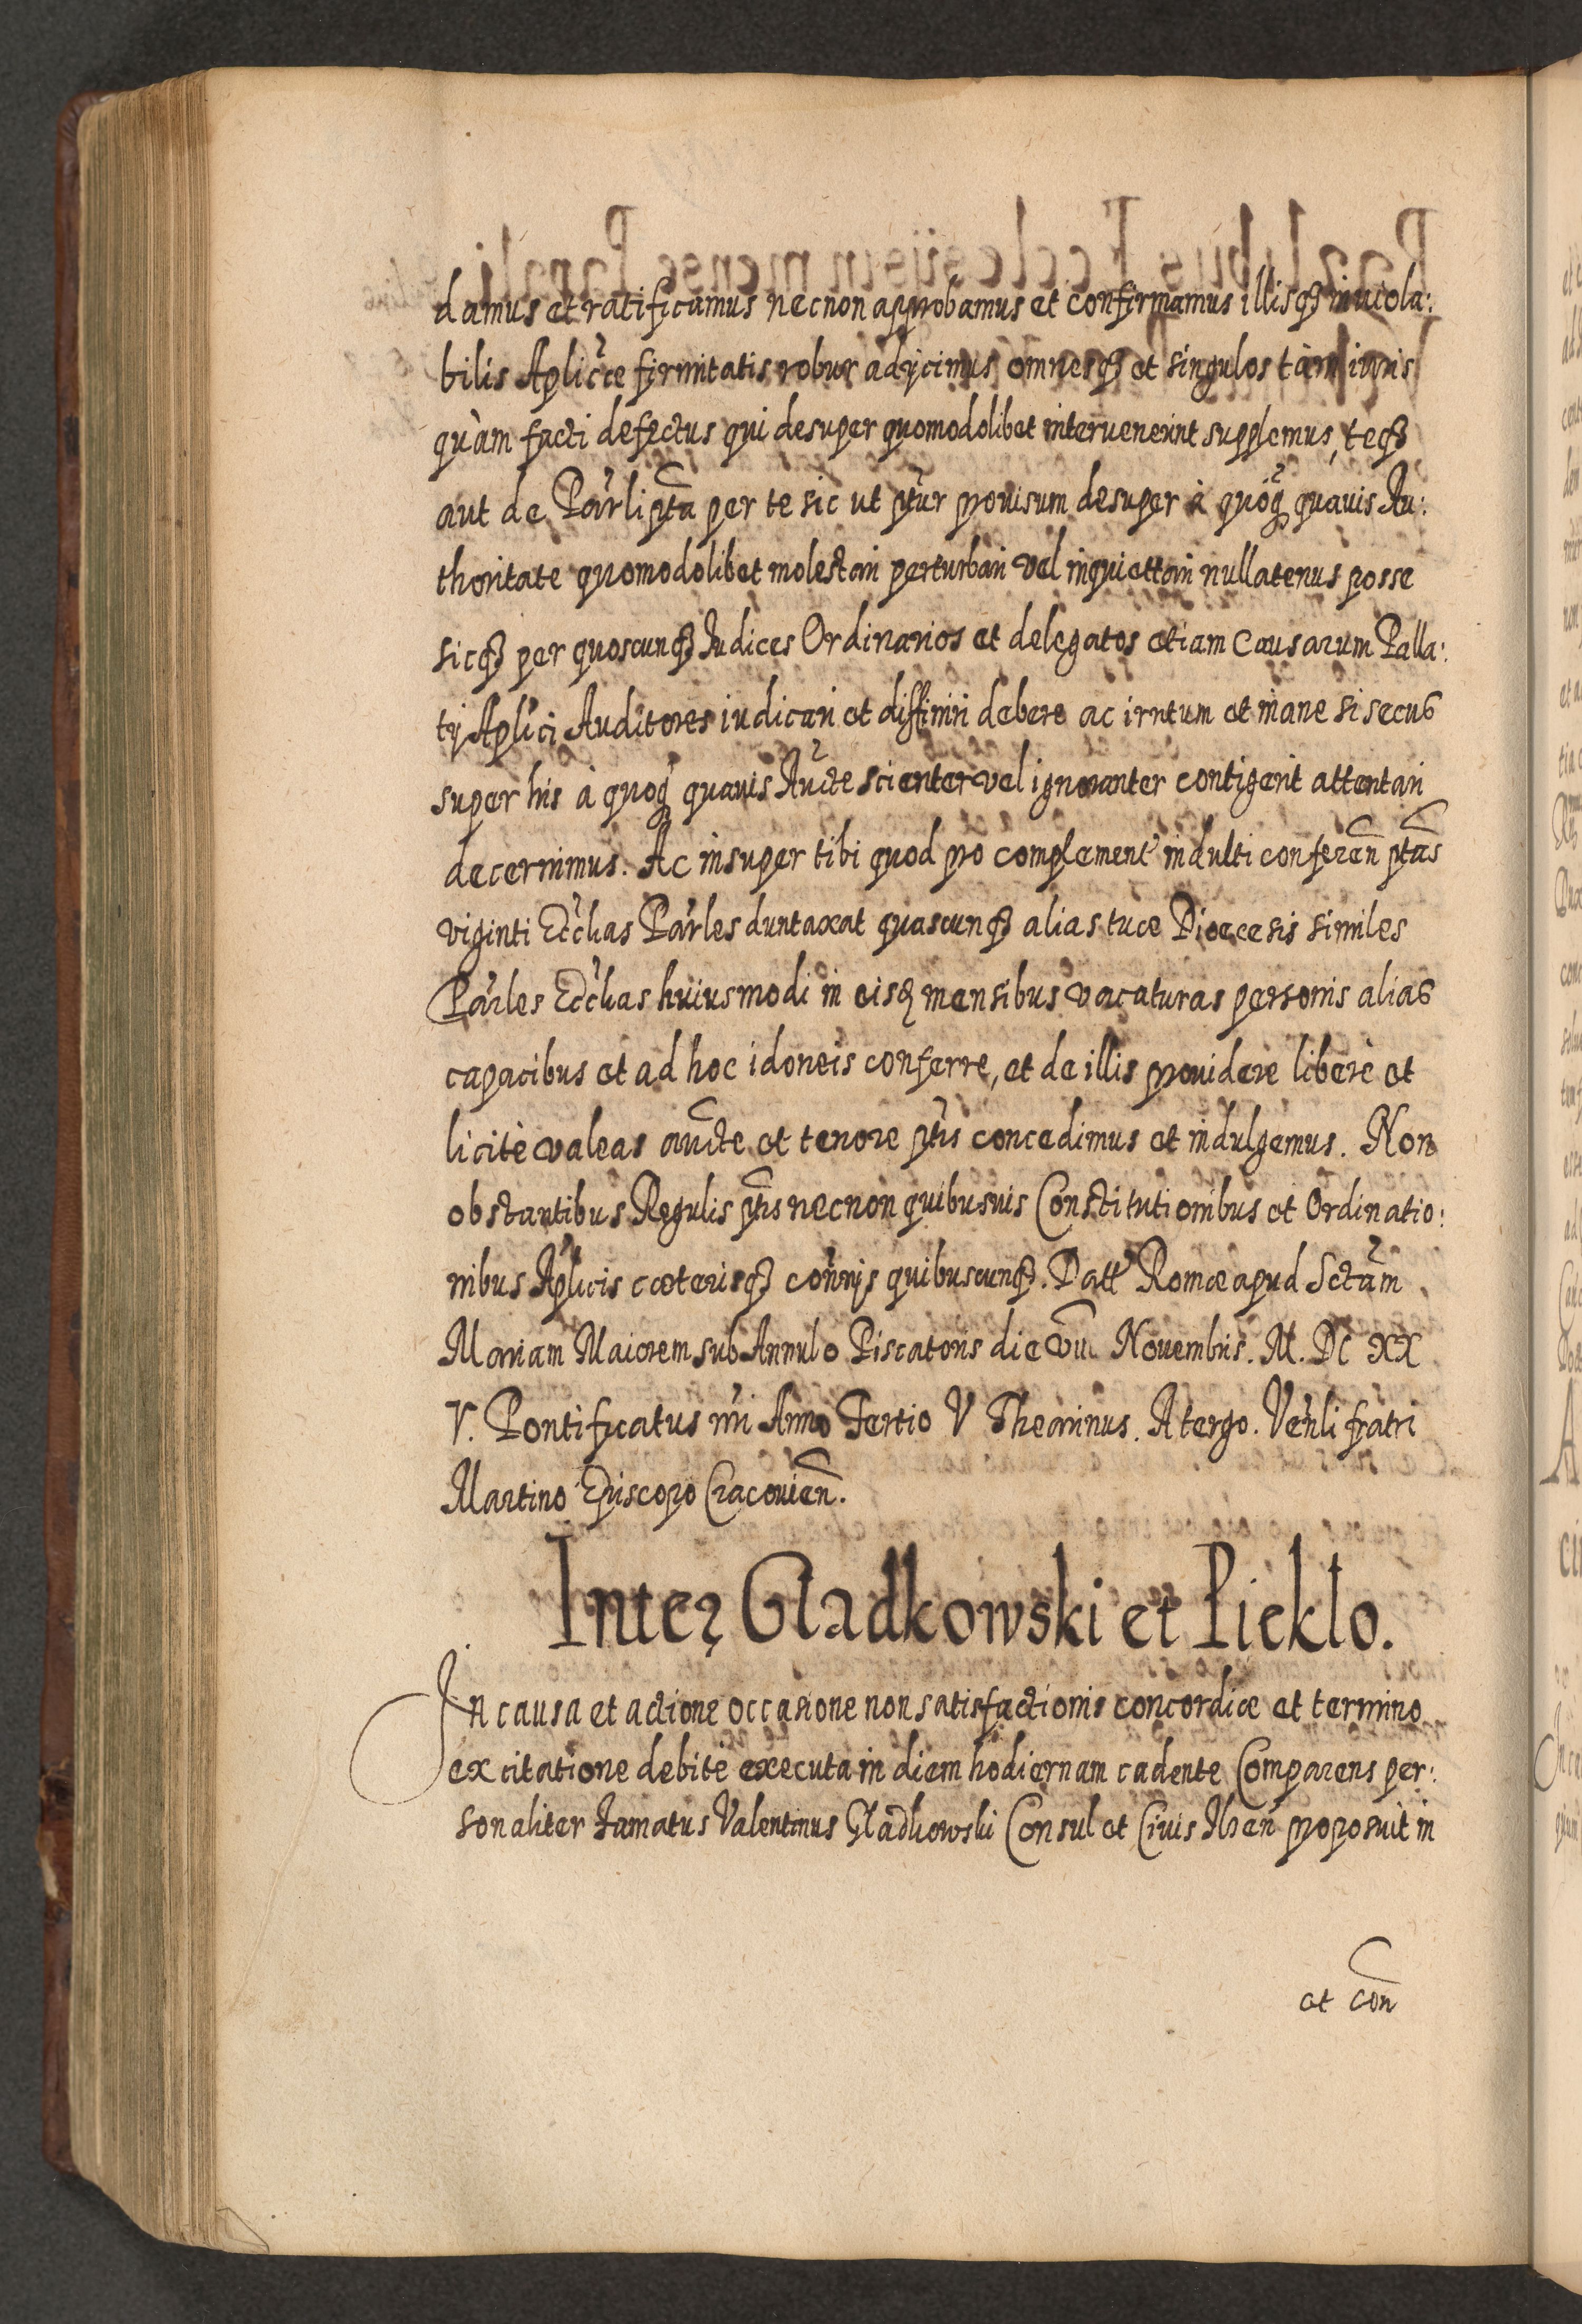 damus et ratificamus necnon approbamus et confirmamus illisq3 inuiola:
bilis Aplicæ firmitatis robur adijcimus omnesq3 et singulos tàm iuris
quàm facti defectus qui desuper quomodolibet interuenerint supplemus, teq3
aut de Parli pta per te sic ut ptur prouisum desuper à quoq quauis Au:
thoritate quomodolibet molestari perturbari vel inquiettari nullatenus posse
sicq3 per quoscunq3 Iudices Ordinarios et delegatos etiam Causarum Palla:
tij Aplici Auditores iudicari et diffiniri debere ac irritum et inane si secus
super his à quoq quauis Aucte scienter vel ignoranter contigerit attentari
decernimus. Ac insuper tibi quod pro complement' indulti conferen ptas
viginti Ecclias Parles duntaxat quascunq3 alias tuæ Dioecesis similes
Parles Ecclias huiusmodi in eisq mensibus vacaturas personis alias
capacibus et ad hoc idoneis conferre, et de illis prouidere liberè et
licitè valeas aucte et tenore ptis concedimus et indulgemus. Non
obstantibus Regulis ptis necnon quibusuis Constitutionibus et Ordinatio:
nibus Aplicis cæterisq3 conrijs quibuscunq3. Datt Romæ apud Sctam
Mariam Maiorem sub Annulo Piscatoris die VIII Nouembris. M. DC XX
V. Pontificatus nri Anno Tertio V Thearinus. A tergo. Venli fratri
Martino Episcopo Cracouien.
Inter Gladkowski et Pieklo.
In causa et actione occasione non satisfactionis concordiæ et termino
ex citatione debitè executa in diem hodiernam cadente Comparens per:
sonaliter famatus Valentinus Gladkowski Consul et Ciuis proposuit in
et con